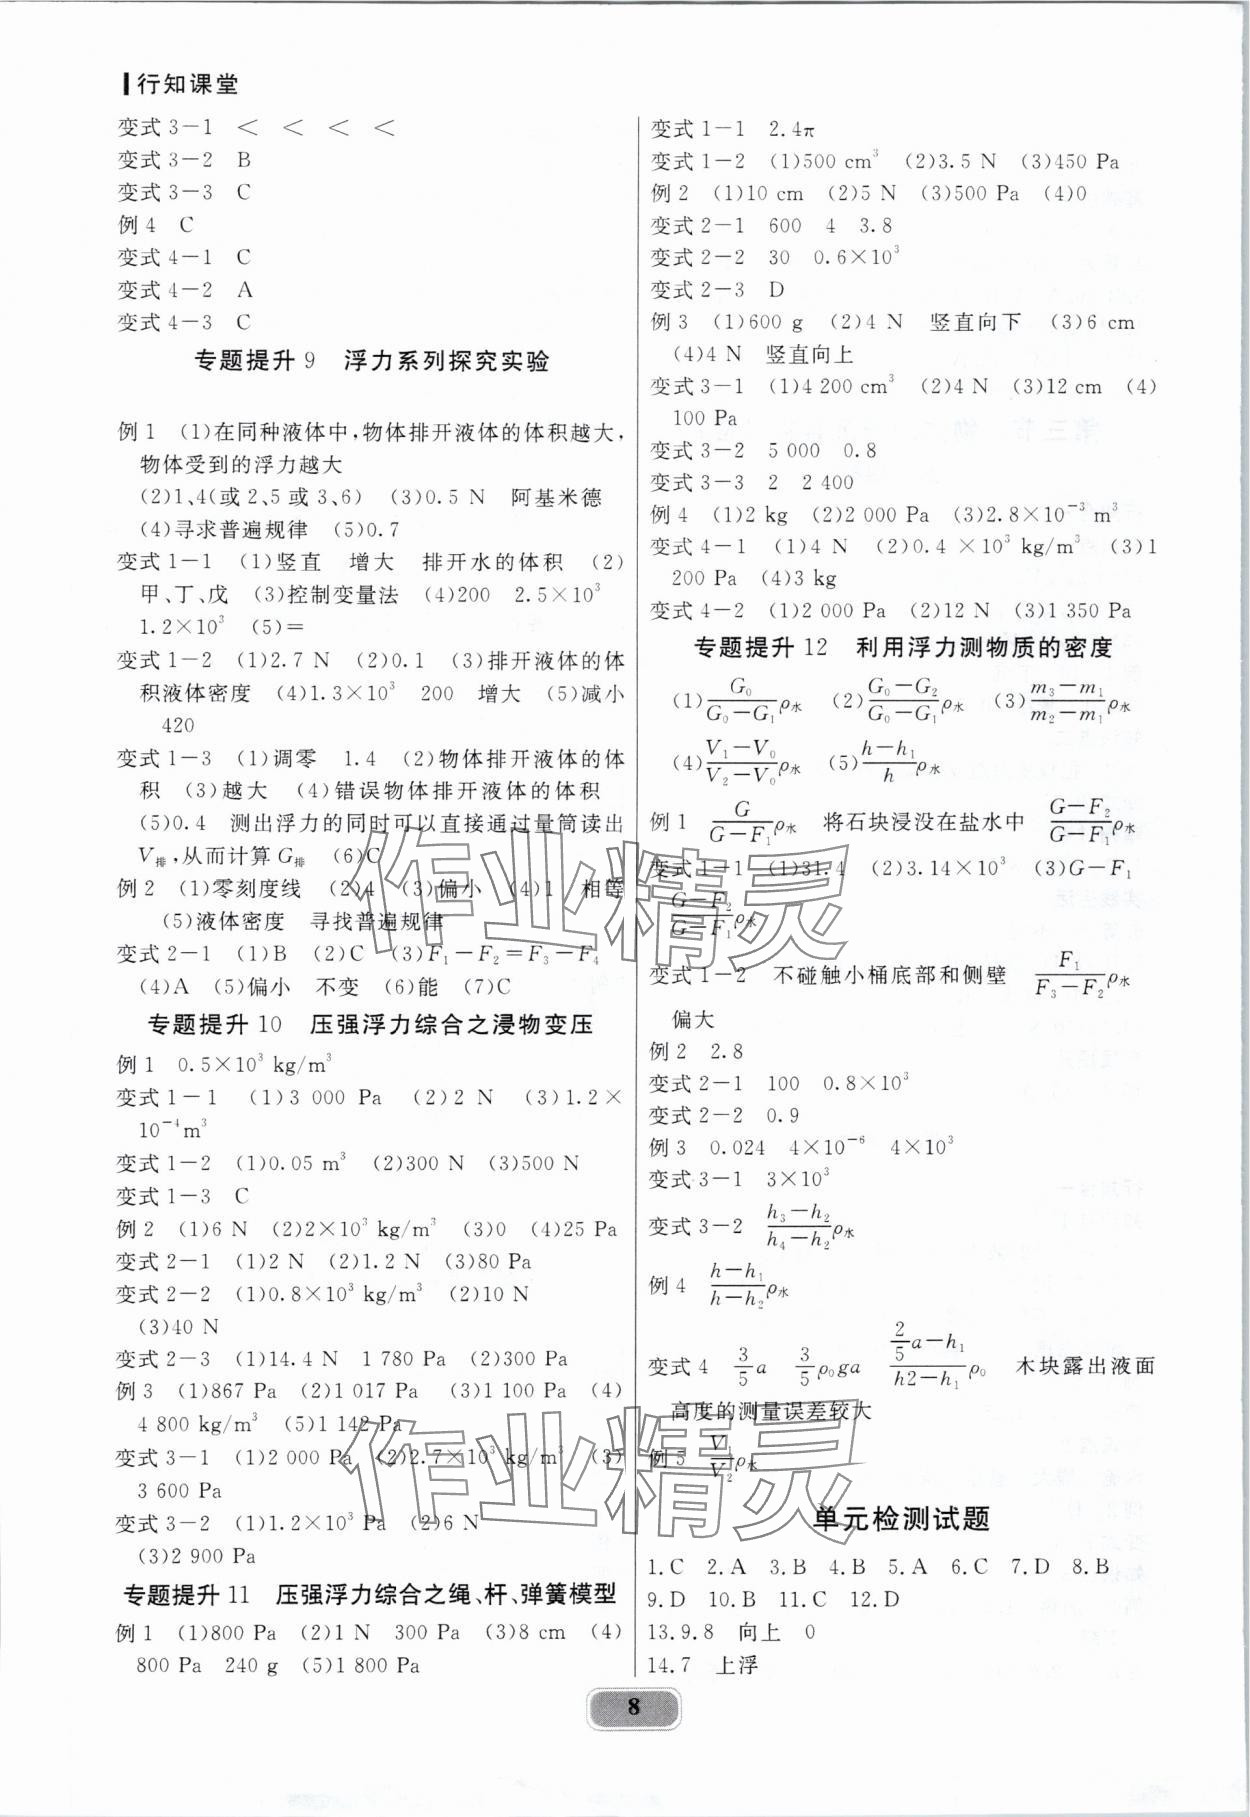 行知课堂
变式3－1　＜　＜　＜　＜
变式3－2　B
变式3－3　C
例4　C
变式4－1　C
变式4－2　A
变式4－3　C
专题提升9　浮力系列探究实验
例1　(1)在同种液体中,物体排开液体的体积越大,
物体受到的浮力越大
(2)1、4(或2、5或3、6)　(3)0.5 N　阿基米德
(4)寻求普遍规律　(5)0.7
变式1－1　(1)竖直　增大　排开水的体积　(2)
甲、丁、戊　(3)控制变量法　(4)200　2.5×10³
1.2×10³　(5)＝
变式1－2　(1)2.7 N　(2)0.1　(3)排开液体的体
积液体密度　(4)1.3×10³　200　增大　(5)减小
420
变式1－3　(1)调零　1.4　(2)物体排开液体的体
积　(3)越大　(4)错误物体排开液体的体积
(5)0.4　测出浮力的同时可以直接通过量筒读出
V排,从而计算G排　(6)C
例2　(1)零刻度线　(2)4　(3)偏小　(4)1　相等
(5)液体密度　寻找普遍规律
变式2－1　(1)B　(2)C　(3)F₁－F₂＝F₃－F₄
(4)A　(5)偏小　不变　(6)能　(7)C
专题提升10　压强浮力综合之浸物变压
例1　0.5×10³ kg/m³
变式1－1　(1)3 000 Pa　(2)2 N　(3)1.2×
10⁻⁴m³
变式1－2　(1)0.05 m³　(2)300 N　(3)500 N
变式1－3　C
例2　(1)6 N　(2)2×10³ kg/m³　(3)0　(4)25 Pa
变式2－1　(1)2 N　(2)1.2 N　(3)80 Pa
变式2－2　(1)0.8×10³ kg/m³　(2)10 N
(3)40 N
变式2－3　(1)14.4 N　1 780 Pa　(2)300 Pa
例3　(1)867 Pa　(2)1 017 Pa　(3)1 100 Pa　(4)
4 800 kg/m³　(5)1 142 Pa
变式3－1　(1)2 000 Pa　(2)2.7×10³ kg/m³　(3)
3 600 Pa
变式3－2　(1)1.2×10³ Pa　(2)6 N
(3)2 900 Pa
专题提升11　压强浮力综合之绳、杆、弹簧模型
例1　(1)800 Pa　(2)1 N　300 Pa　(3)8 cm　(4)
800 Pa　240 g　(5)1 800 Pa
变式1－1　2.4π
变式1－2　(1)500 cm³　(2)3.5 N　(3)450 Pa
例2　(1)10 cm　(2)5 N　(3)500 Pa　(4)0
变式2－1　600　4　3.8
变式2－2　30　0.6×10³
变式2－3　D
例3　(1)600 g　(2)4 N　竖直向下　(3)6 cm
(4)4 N　竖直向上
变式3－1　(1)4 200 cm³　(2)4 N　(3)12 cm　(4)
100 Pa
变式3－2　5 000　0.8
变式3－3　2　2 400
例4　(1)2 kg　(2)2 000 Pa　(3)2.8×10⁻³ m³
变式4－1　(1)4 N　(2)0.4 ×10³ kg/m³　(3)1
200 Pa　(4)3 kg
变式4－2　(1)2 000 Pa　(2)12 N　(3)1 350 Pa
专题提升12　利用浮力测物质的密度
(1)G₀/(G₀－G₁)ρ水　(2)(G₀－G₂)/(G₀－G₁)ρ水　(3)(m₃－m₁)/(m₂－m₁)ρ水
(4)(V₁－V₀)/(V₂－V₀)ρ水　(5)(h－h₁)/hρ水
例1　G/(G－F₁)ρ水　将石块浸没在盐水中　(G－F₂)/(G－F₁)ρ水
变式1－1　(1)31.4　(2)3.14×10³　(3)G－F₁
(G－F₂)/(G－F₁)ρ水
变式1－2　不碰触小桶底部和侧壁　F₁/(F₃－F₂)ρ水
偏大
例2　2.8
变式2－1　100　0.8×10³
变式2－2　0.9
例3　0.024　4×10⁻⁶　4×10³
变式3－1　3×10³
变式3－2　(h₃－h₂)/(h₄－h₂)ρ水
例4　(h－h₁)/(h－h₂)ρ水
变式4　3/5a　3/5ρ₀ga　(2/5a－h₁)/(h2－h₁)ρ₀　木块露出液面
高度的测量误差较大
例5　V₁/V₂ρ水
单元检测试题
1.C　2.A　3.B　4.B　5.A　6.C　7.D　8.B
9.D　10.B　11.C　12.D
13.9.8　向上　0
14.7　上浮
8
作业精灵
作业精灵